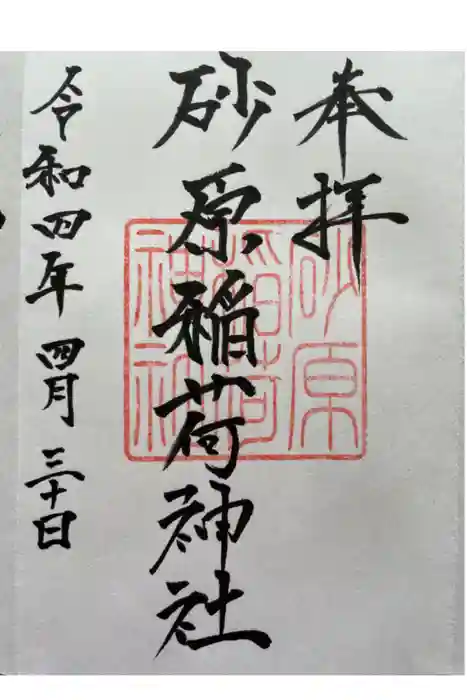 奉拝
砂原稲荷神社
砂原
稲荷
神社
令和四年 四月 三十日